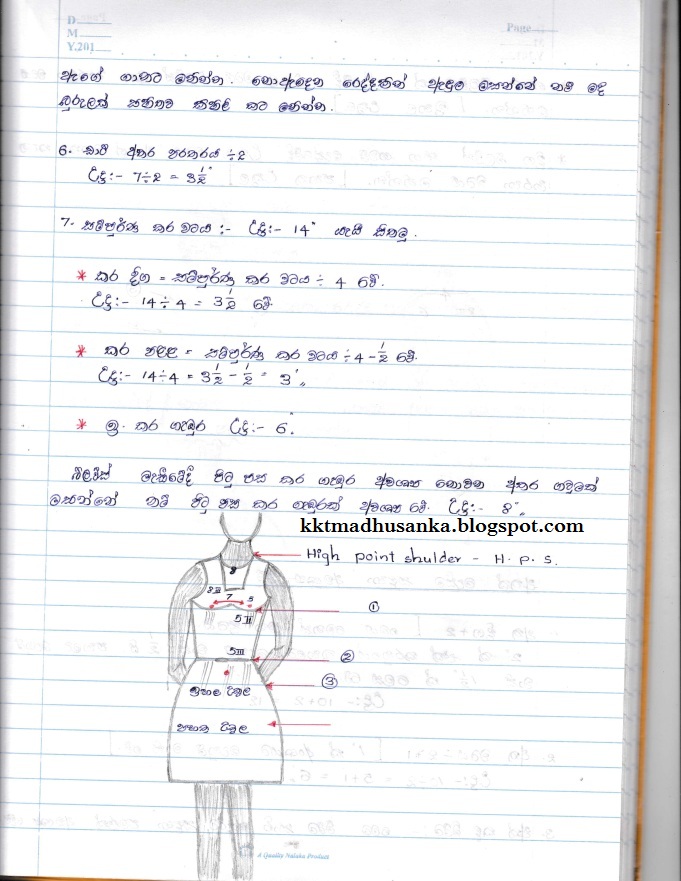 D.......
M.......
Y.201.....
Page.......
ඇගේ ගානට මනින්න. නොඇදෙන රෙද්දකින් ඇඳුම මසන්නේ නම් මද
බුරුලක් සහිතව කිහිලි කට මනින්න.
6. ඩාට් අතර පරතරය ÷ 2
උදු:- 7 ÷ 2 = 3 1/2"
7. සම්පූර්ණ කර වටය :- උදු:- 14" යැයි සිතමු.
* කර දිග = සම්පූර්ණ කර වටය ÷ 4 වේ.
උදු:- 14 ÷ 4 = 3 1/2 වේ
* කර පළල = සම්පූර්ණ කර වටය ÷ 4 - 1/2 වේ.
උදු:- 14 ÷ 4 = 3 1/2 - 1/2 = 3"
* ඉ. කර ගැඹුර උදු:- 6"
බ්ලවුස් මැසීමේදී පිටු පස කර ගැඹුර අවශ්‍ය නොවන අතර ගවුමක්
මසන්නේ නම් පිටු පස කර ගැඹුරක් අවශ්‍ය වේ. උදු:- 8"
kktmadhusanka.blogspot.com
High point shulder - H. P. S.
8
3III
7
5
①
5II
5III
②
③
ඉහළ ටිවුල
පහත ටිවුල
A Quality Nalaka Product